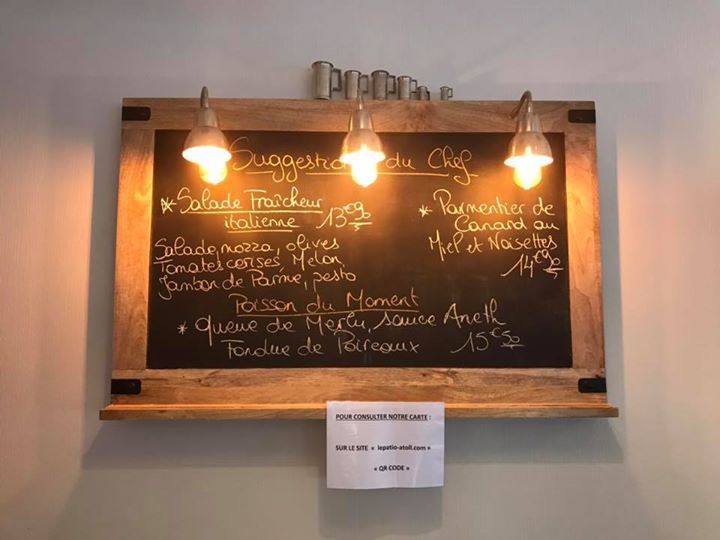 Suggestion du Chef
* Salade Fraîcheur
italienne 13€90
Salade, mozza, olives
Tomates cerises, Melon,
Jambon de Parme, pesto
* Parmentier de
Canard au
Miel et Noisettes
14€90
Poisson du Moment
* Queue de Merlu, sauce Aneth
Fondue de Poireaux 15€50
POUR CONSULTER NOTRE CARTE :
SUR LE SITE « lepatio-atoll.com »
« QR CODE »